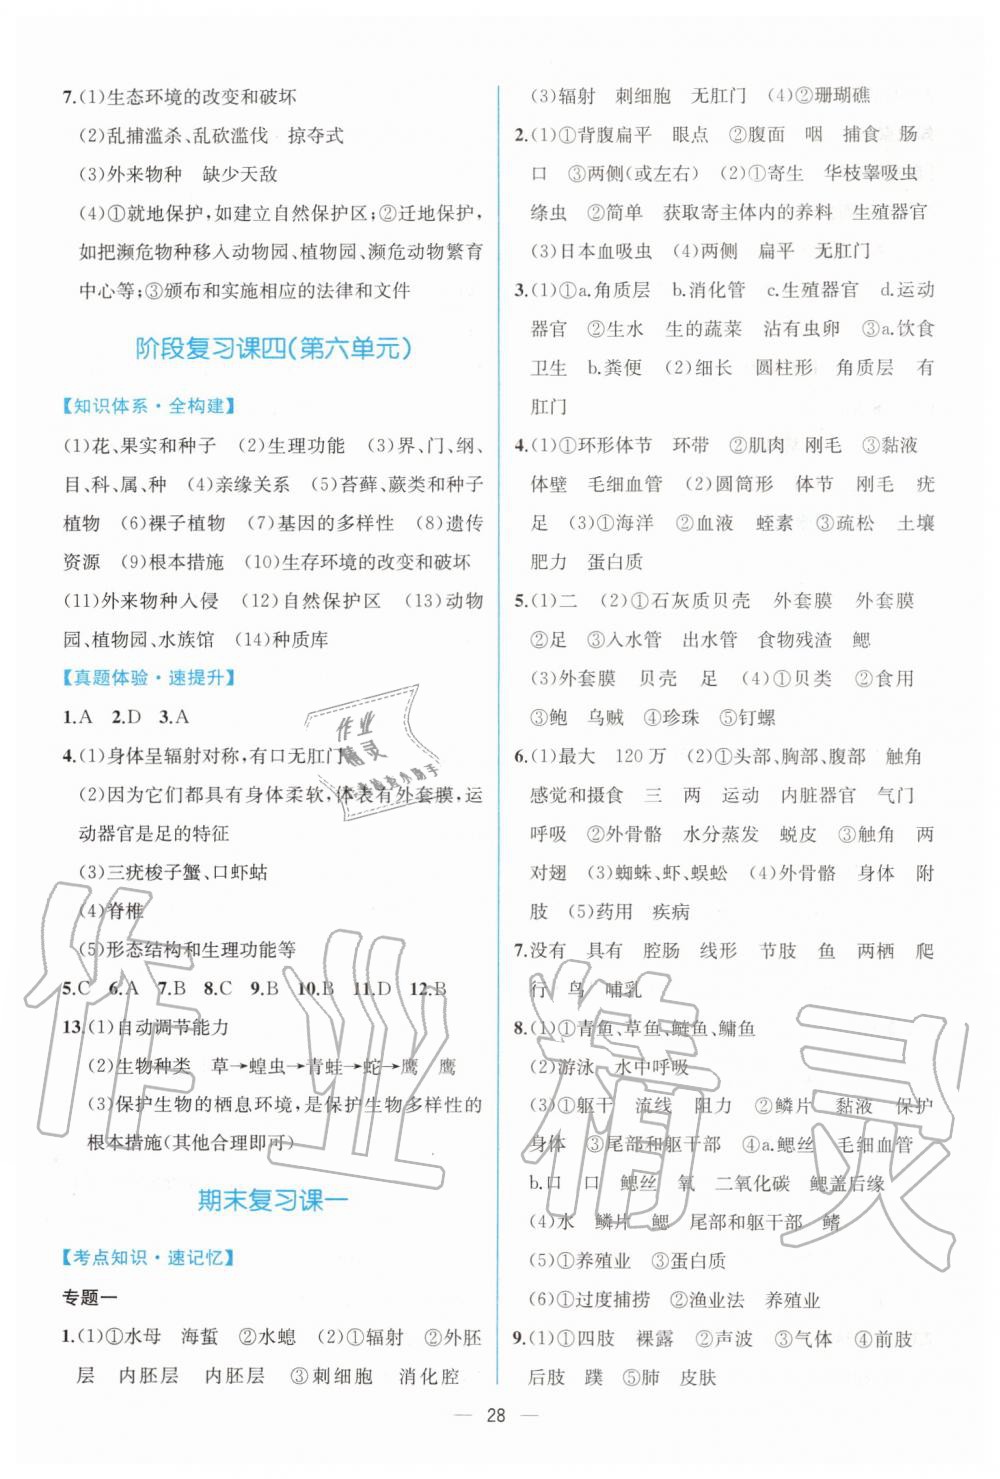 7.(1)生态环境的改变和破坏
(2)乱捕滥杀、乱砍滥伐　掠夺式
(3)外来物种　缺少天敌
(4)①就地保护,如建立自然保护区;②迁地保护,
如把濒危物种移入动物园、植物园、濒危动物繁育
中心等;③颁布和实施相应的法律和文件
阶段复习课四(第六单元)
【知识体系·全构建】
(1)花、果实和种子　(2)生理功能　(3)界、门、纲、
目、科、属、种　(4)亲缘关系　(5)苔藓、蕨类和种子
植物　(6)裸子植物　(7)基因的多样性　(8)遗传
资源　(9)根本措施　(10)生存环境的改变和破坏
(11)外来物种入侵　(12)自然保护区　(13)动物
园、植物园、水族馆　(14)种质库
【真题体验·速提升】
1.A　2.D　3.A
4.(1)身体呈辐射对称,有口无肛门
(2)因为它们都具有身体柔软,体表有外套膜,运
动器官是足的特征
(3)三疣梭子蟹、口虾蛄
(4)脊椎
(5)形态结构和生理功能等
5.C　6.A　7.B　8.C　9.B　10.B　11.D　12.B
13.(1)自动调节能力
(2)生物种类　草→蝗虫→青蛙→蛇→鹰　鹰
(3)保护生物的栖息环境,是保护生物多样性的
根本措施(其他合理即可)
期末复习课一
【考点知识·速记忆】
专题一
1.(1)①水母　海蜇　②水螅　(2)①辐射　②外胚
层　内胚层　内胚层　③刺细胞　消化腔
(3)辐射　刺细胞　无肛门　(4)②珊瑚礁
2.(1)①背腹扁平　眼点　②腹面　咽　捕食　肠
口　③两侧(或左右)　(2)①寄生　华枝睾吸虫
绦虫　②简单　获取寄主体内的养料　生殖器官
(3)日本血吸虫　(4)两侧　扁平　无肛门
3.(1)①a.角质层　b.消化管　c.生殖器官　d.运动
器官　②生水　生的蔬菜　沾有虫卵　③a.饮食
卫生　b.粪便　(2)细长　圆柱形　角质层　有
肛门
4.(1)①环形体节　环带　②肌肉　刚毛　③黏液
体壁　毛细血管　(2)圆筒形　体节　刚毛　疣
足　(3)①海洋　②血液　蛭素　③疏松　土壤
肥力　蛋白质
5.(1)二　(2)①石灰质贝壳　外套膜　外套膜
②足　③入水管　出水管　食物残渣　鳃
(3)外套膜　贝壳　足　(4)①贝类　②食用
③鲍　乌贼　④珍珠　⑤钉螺
6.(1)最大　120 万　(2)①头部、胸部、腹部　触角
感觉和摄食　三　两　运动　内脏器官　气门
呼吸　②外骨骼　水分蒸发　蜕皮　③触角　两
对翅　(3)蜘蛛、虾、蜈蚣　(4)外骨骼　身体　附
肢　(5)药用　疾病
7.没有　具有　腔肠　线形　节肢　鱼　两栖　爬
行　鸟　哺乳
8.(1)①青鱼、草鱼、鲢鱼、鳙鱼
(2)游泳　水中呼吸
(3)①躯干　流线　阻力　②鳞片　黏液　保护
身体　③尾部和躯干部　④a.鳃丝　毛细血管
b.口　口　鳃丝　氧　二氧化碳　鳃盖后缘
(4)水　鳞片　鳃　尾部和躯干部　鳍
(5)①养殖业　③蛋白质
(6)①过度捕捞　②渔业法　养殖业
9.(1)①四肢　裸露　②声波　③气体　④前肢
后肢　蹼　⑤肺　皮肤
— 28 —
作业
精灵
作业精灵